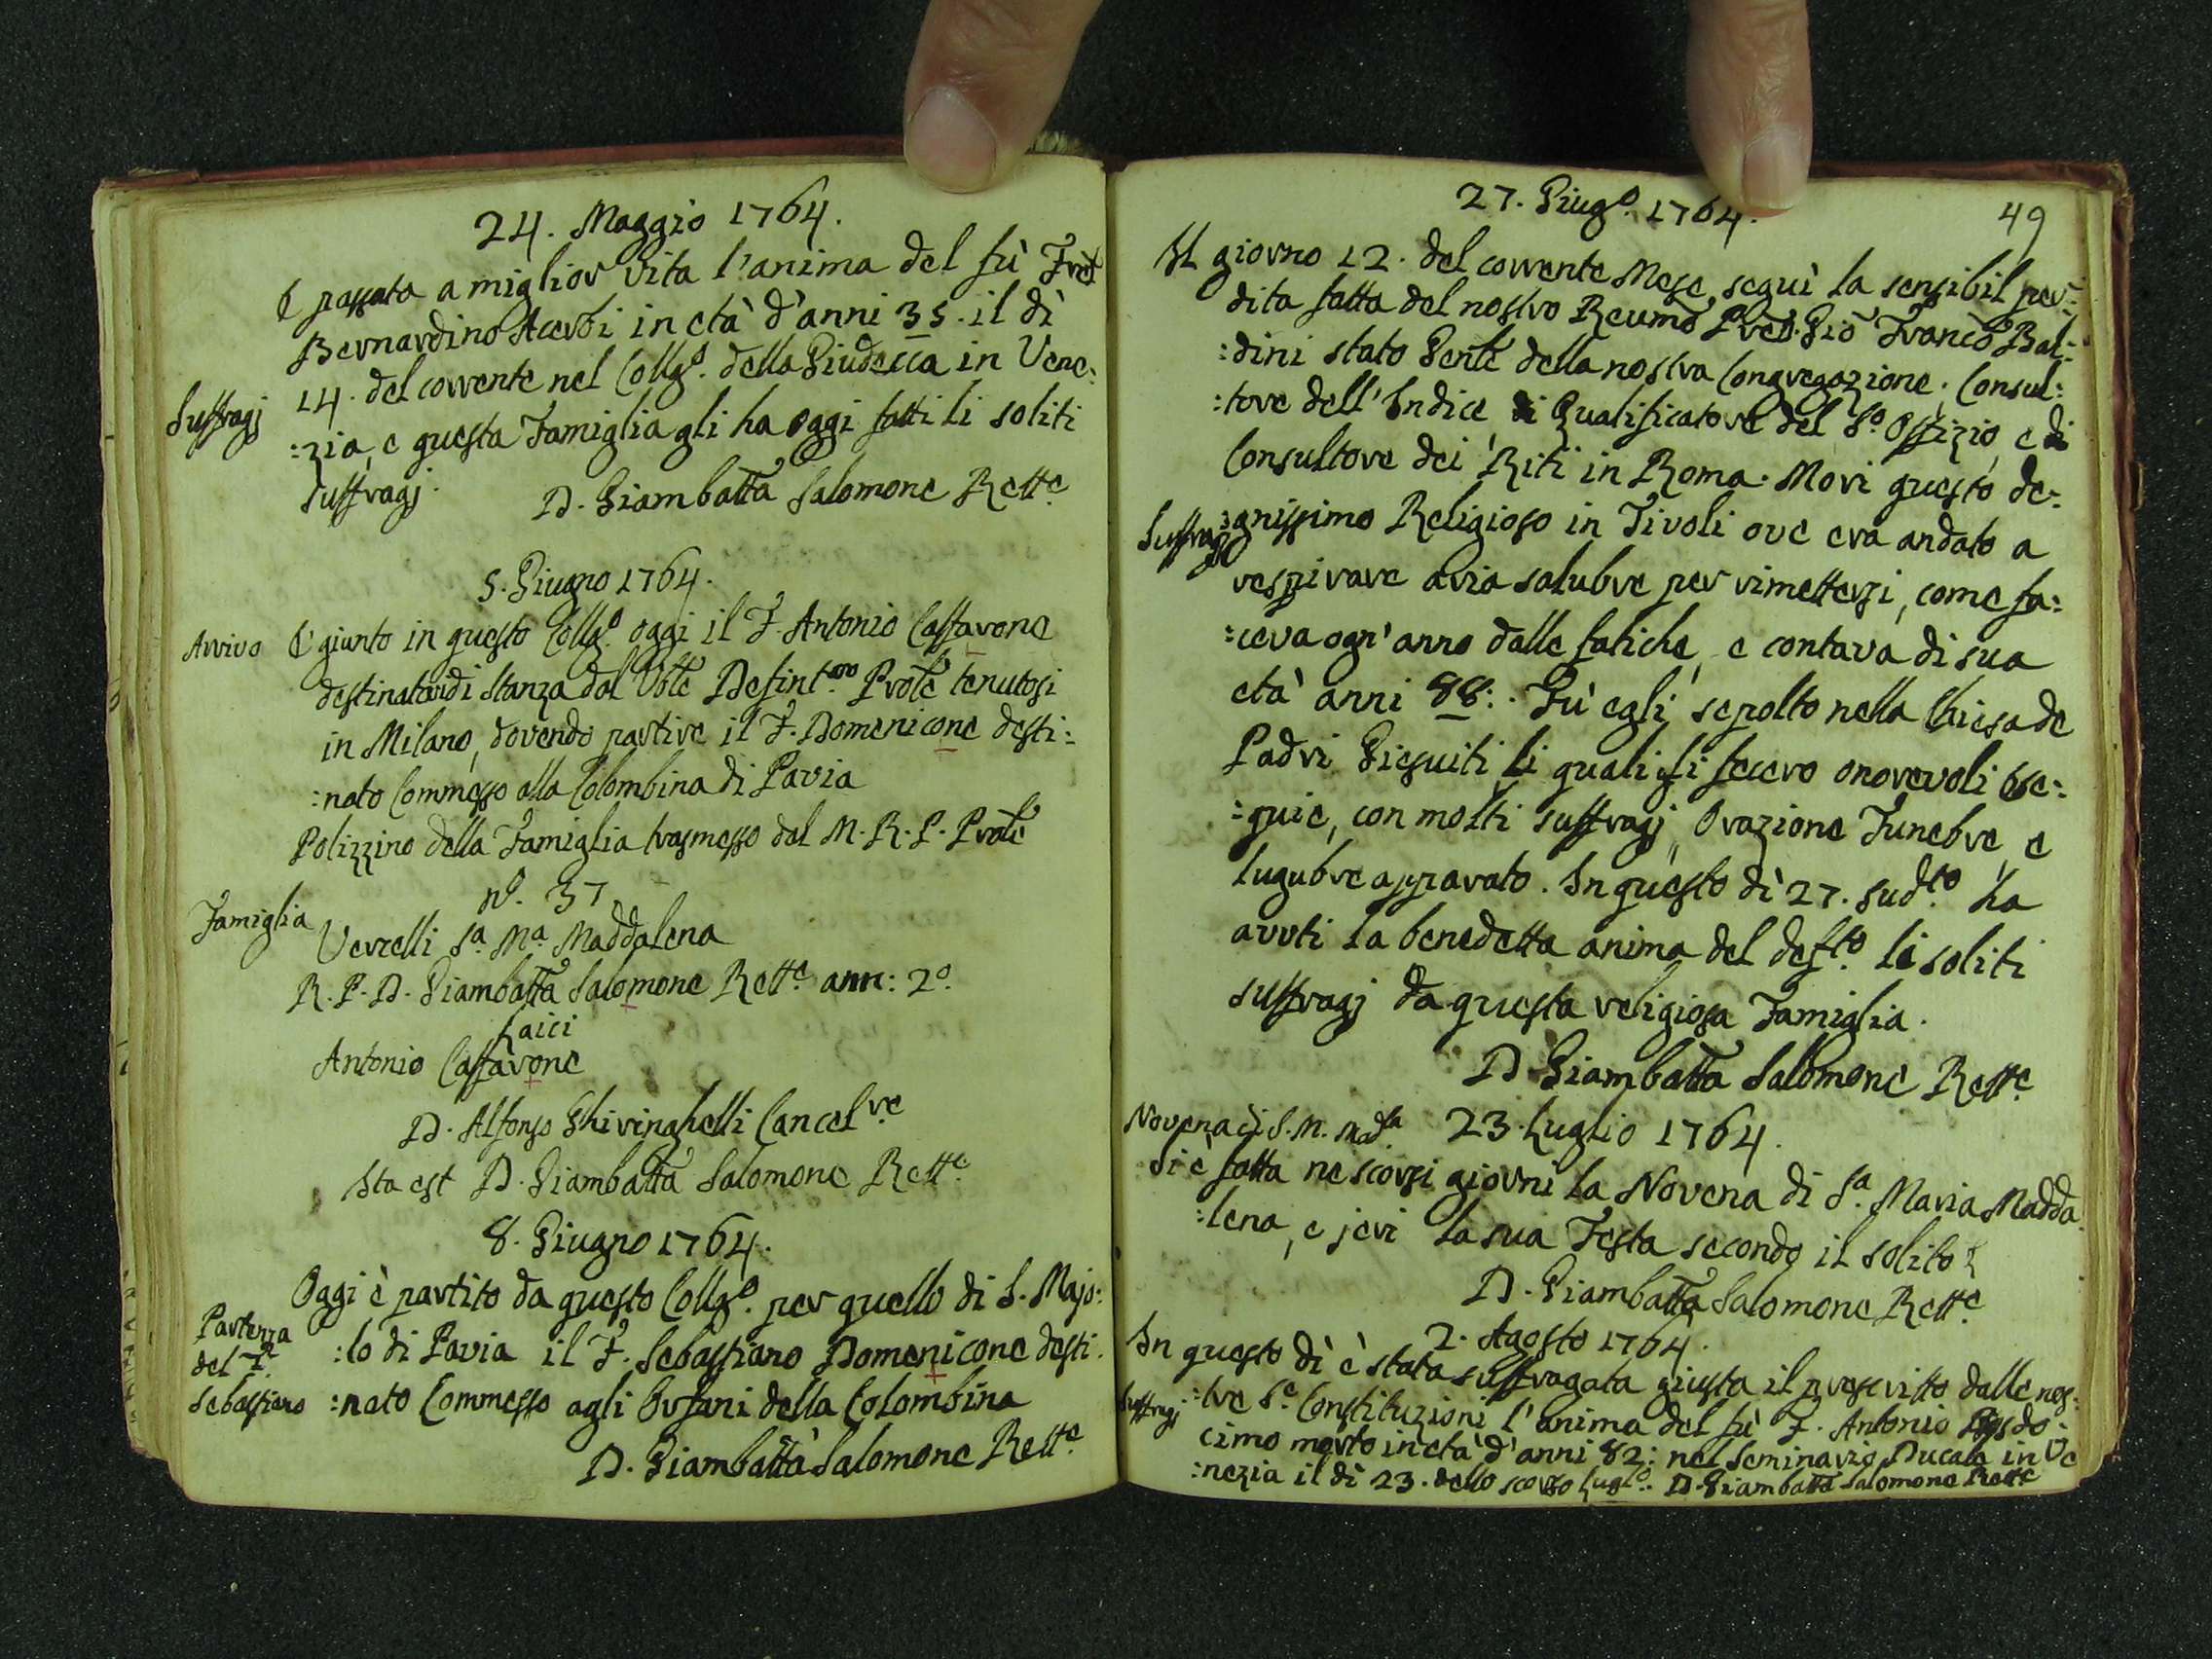 24. Maggio 1764.
È passata a miglior vita l'anima del fù
Bernardino Acerbi in età d'anni 35. il dì
14. del corrente nel Collg.º della Giudecca in Vene:
Suffragj
:zia, e questa Famiglia gli ha oggi fatti li soliti
suffragj.
D. Giambatta Salomone Rett.e
5. Giugno 1764.
Arrivo
È giunto in questo Collg.º oggi il F. Antonio Caffarone
di stanza dal Vble Defint.rio Prôle tenutosi
in Milano, dovendo partire il F. Domenicone desti:
:nato Commesso alla Colombina di Pavia
Polizzino della Famiglia trasmesso dal M. R. P. Prôle
Nº. 37
Famiglia
Vercelli S.a M.a Maddalena
R. P. D. Giambatta Salomone Rett.e ann: 2º.
Laici
Antonio Caffarone
D. Alfonso Ghiringhelli Cancel.re
Ita est D. Giambatta Salomone Rett.e
8. Giugno 1764.
Oggi è partito da questo Collg.º per quello di S. Majo:
Partenza
del F.
Sebastiano
:lo di Pavia il F. Sebastiano Domenicone desti:
:nato Commesso agli Orfani della Colombina
D. Giambatta Salomone Rett.e
27. Giug.º 1764.
49
Il giorno 12. del corrente Mese, seguì la sensibil per:
dita fatta del nostro Reumo Pred. Gio Franco Bal:
:dini stato Genle della nostra Congregazione, Consul:
:tore dell'Indice Qualificatore del S.º Offizio, e
Consultore dei Riti in Roma. Morì questo de:
Suffragj
:gnissimo Religioso in Tivoli ove era andato a
respirare aria salubre per rimettersi, come fa:
:ceva ogn'anno dalle fatiche, e contava di sua
età anni 88:. Fù egli sepolto nella Chiesa de
Padri Giesuiti li quali gli fecero onorevoli ese:
:quie, con molti suffragj, Orazione Funebre, e
lugubre apparato. In questo dì 27. sud.to ha
avuti la benedetta anima del def.to li soliti
suffragj da questa religiosa Famiglia.
D. Giambatta Salomone Rett.e
Novena di S. M. Mad.la
23. Luglio 1764.
Si è fatta ne scorsi giorni la Novena di S.a Maria Madda
:lena, e jeri la sua Festa secondo il solito
D. Giambatta Salomone Rett.e
2. Agosto 1764.
In questo dì è stata suffragata giusta il prescritto dalle nos:
Suffragj
:tre S.e Constituzioni l'anima del fù F. Antonio
cimo morto in età d'anni 82: nel Seminario Ducale in Ve
:nezia il dì 23. dello scorso Lugl.º. D. Giambatta Salomone Rette